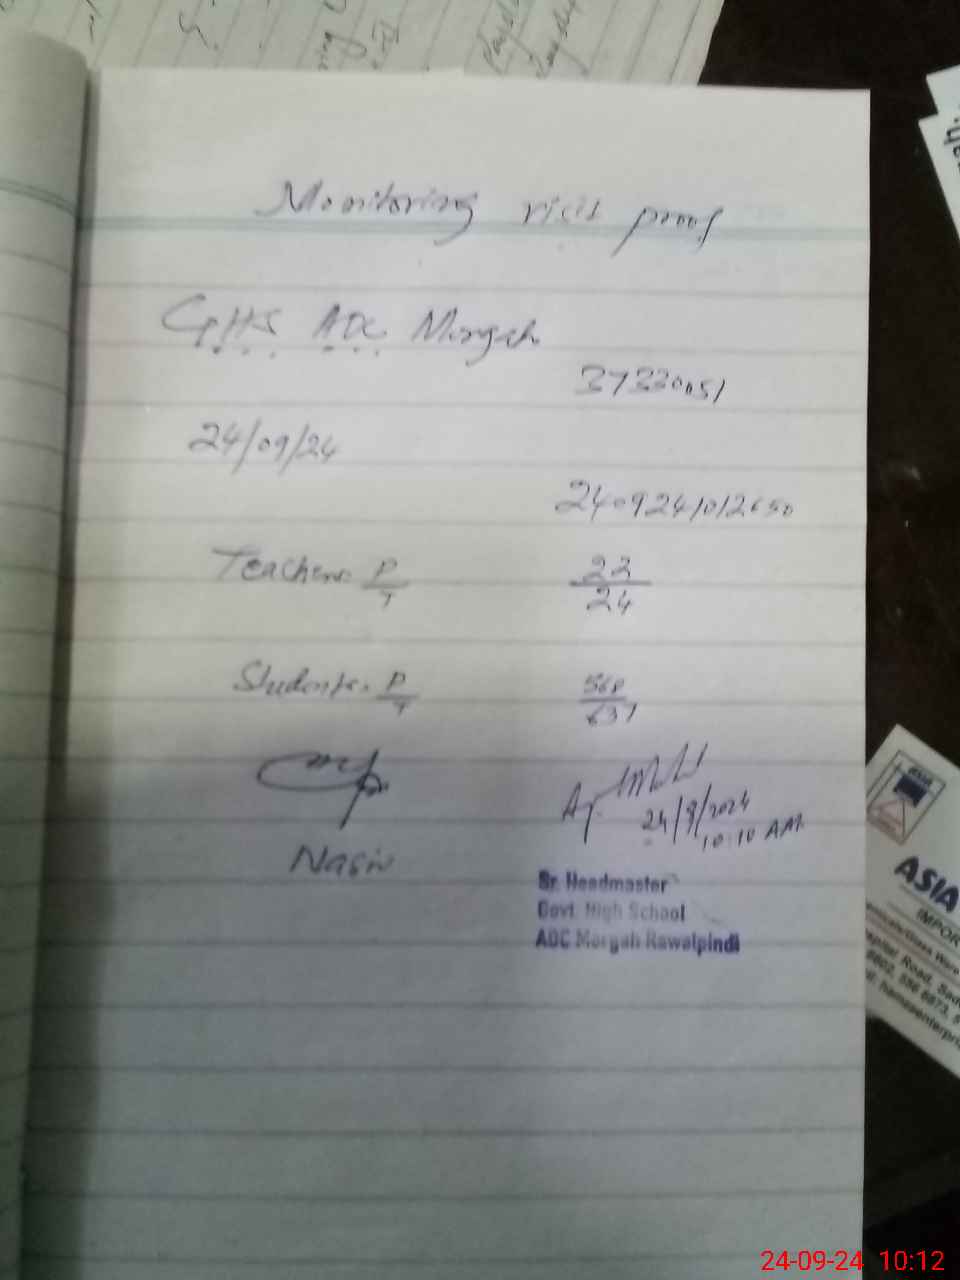 Monitoring visit proof
GHS ADC Morgah
37330051
24/09/24
2409241012650
Teachers. P/T 22/24
Students. P/T 568/637
24/9/2024
10:10 AM
Nasir
Sr. Headmaster
Govt. High School
ADC Morgah Rawalpindi
ASIA
IMPOR
24-09-24 10:12